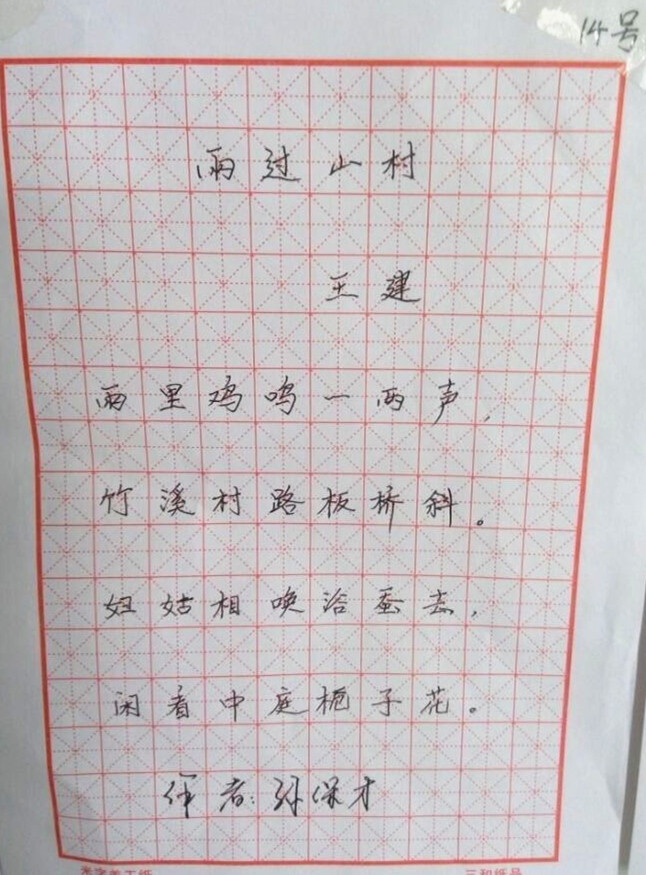 14号
雨过山村
王建
雨里鸡鸣一两声,
竹溪村路板桥斜。
妇姑相唤浴蚕去,
闲看中庭栀子花。
作者:孙保才